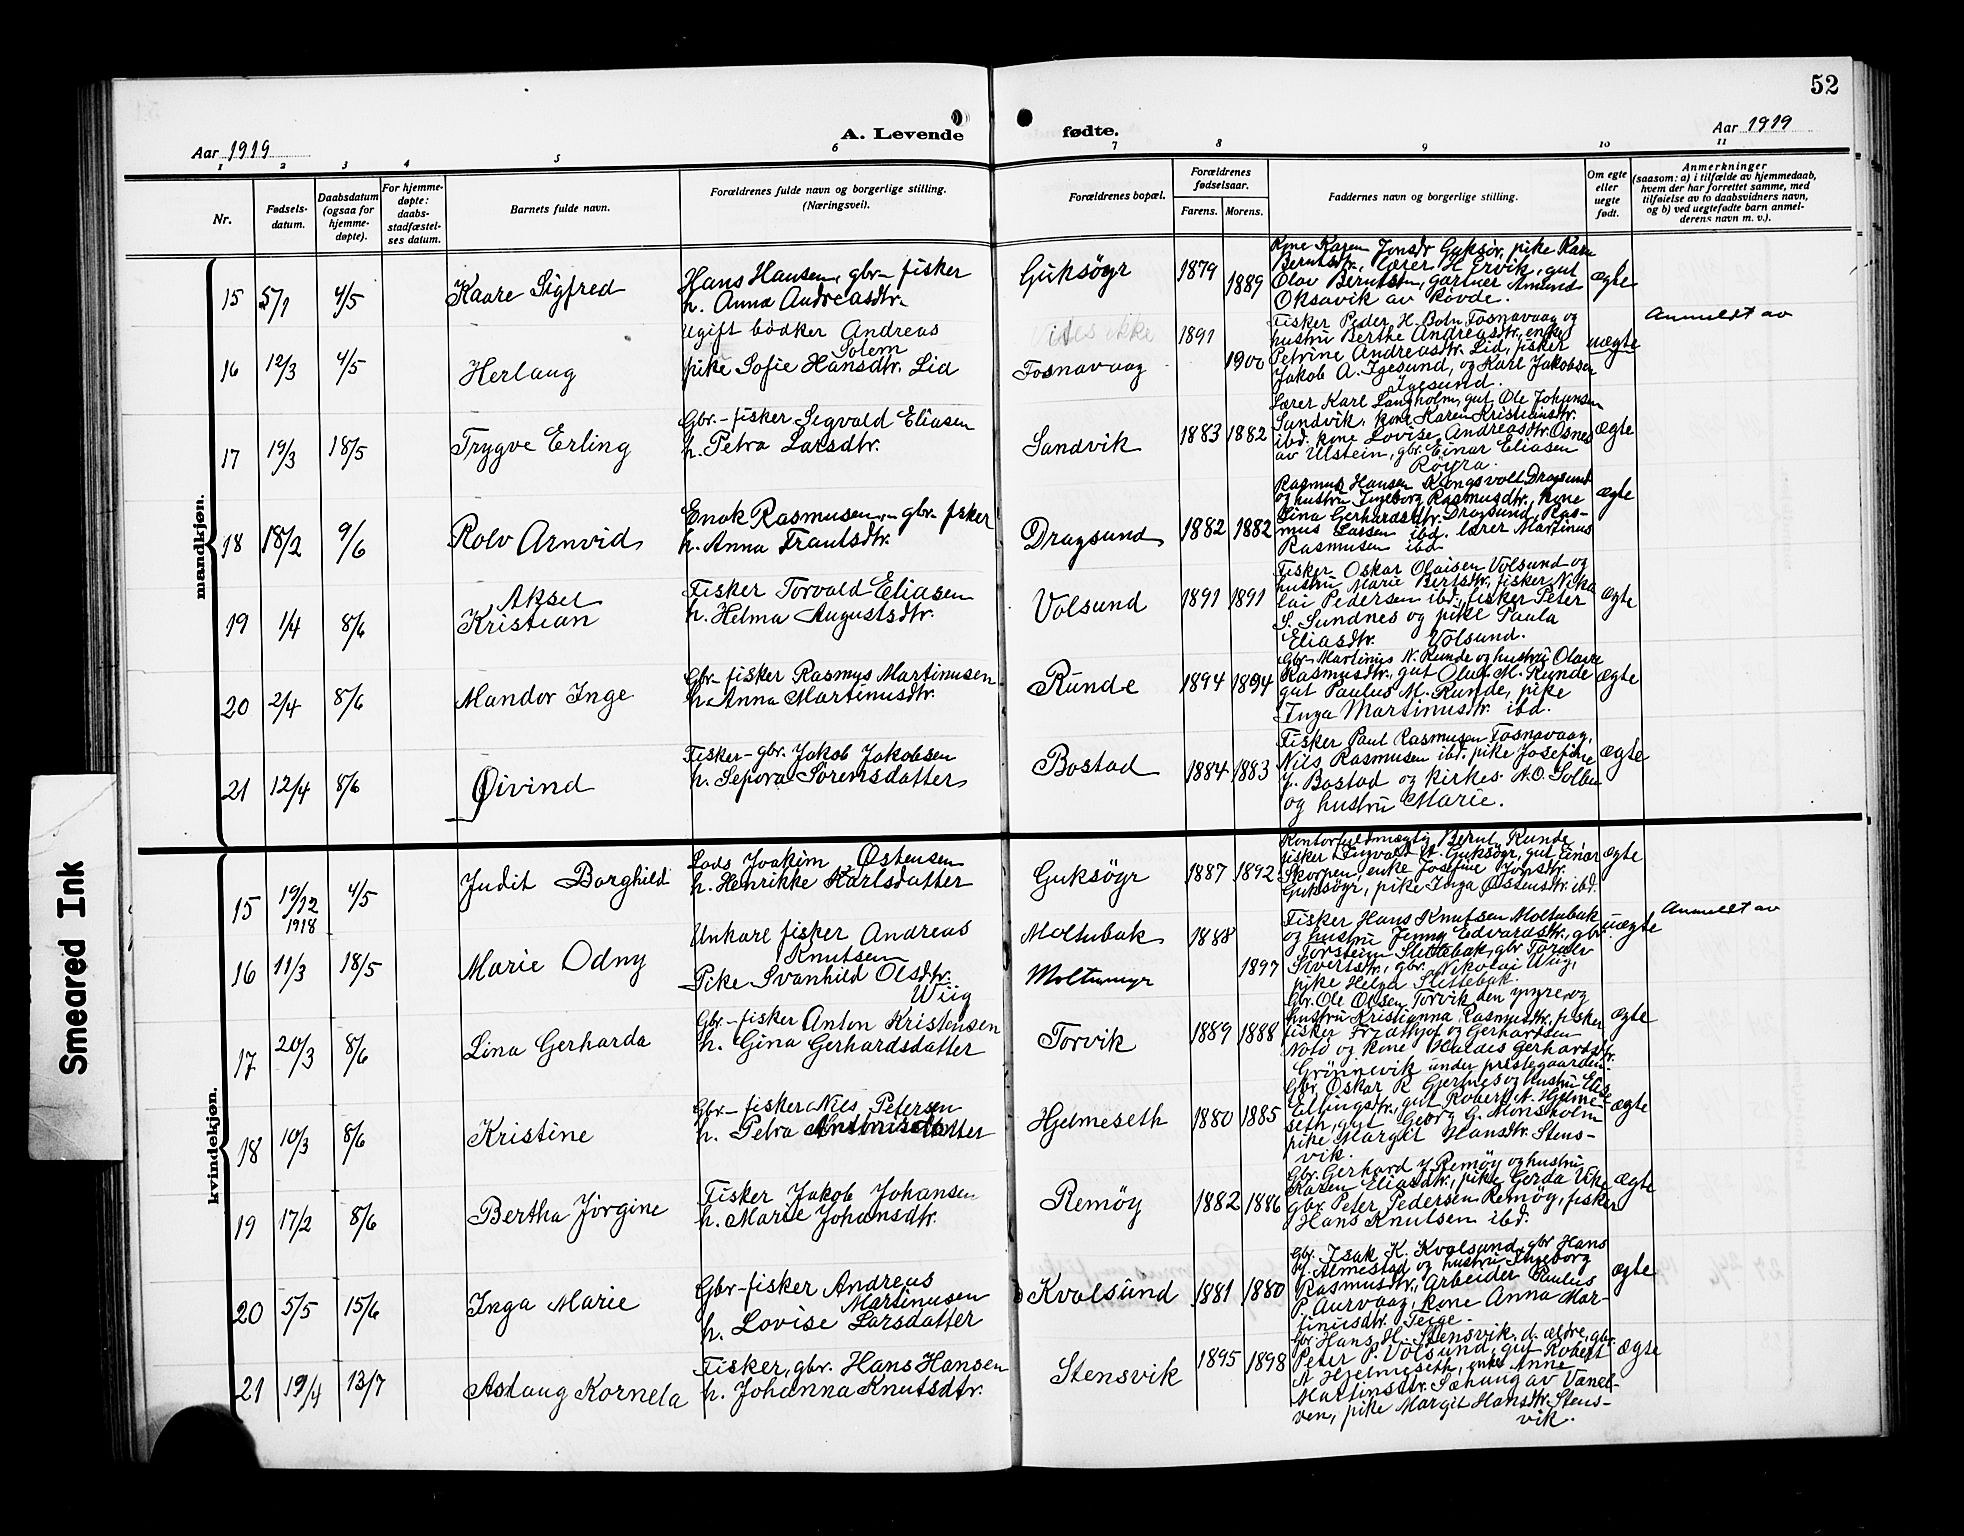 52
A. Levende fødte.
Aar 1919
Aar 1919
1 2 3 4 5 6 7 8 9 10 11
Nr.
Fødsels-
datum.
Daabsdatum
(ogsaa for
hjemme-
døpte).
For hjemme-
døpte:
daabs-
stadfæstel-
ses datum.
Barnets fulde navn.
Forældrenes fulde navn og borgerlige stilling.
(Næringsvei).
Forældrenes bopæl.
Forældrenes
fødselsaar.
Farens. Morens.
Faddernes navn og borgerlige stilling.
Om egte
eller
uegte
født.
Anmerkninger
(saasom: a) i tilfælde av hjemmedaab,
hvem der har forrettet samme, med
tilføielse av to daabsvidners navn,
og b) ved uegtefødte barn anmel-
derens navn m. v.).
mandkjøn.
15 5/1 4/5 Kaare Sigfred
Hans Hansen, gbr-fisker
h. Anna Andreasdtr.
Guksöyr 1879 1889
Kone Karen Jonsdr Guksör, pike Kara
Berntsdtr., Lærer H. Ervik, gut
Olav Berntsen, gartner Amund
Oksavik av Rövde.
ægte
16 12/3 4/5 Herlaug
Ugift bödker Andreas
Solem
pike Sofie Hansdtr. Lid
Vites ikke 1891
Fosnavaag 1900
Fisker Peder H. Botn Fosnavaag og
hustru Berthe Andreasdtr, enke
Petrine Andreasdtr. Lid, fisker
Jakob A. Igesund, og Karl Jakobsen
Igesund.
uægte
Anmeldt av
17 19/3 18/5 Trygve Erling
Gbr.-fisker Segvald Eliasen
h. Petra Larsdtr.
Sandvik 1883 1882
Lærer Karl Langholm, gut Ole Johansen
Sandvik, kone Karen Kristiansdtr.
ibd. kone Lovise Andreasdtr. Osnes
av Ulstein, gbr. Einar Eliasen
Röyra.
ægte
18 18/2 9/6 Rolv Arnvid
Enok Rasmusen, gbr-fisker
h. Anna Frantsdtr.
Dragsund 1882 1882
Rasmus Hansen Kongsvolt Dragsund
og hustru Ingeborg Rasmusdtr., kone
Lina Gerhardsdtr. Dragsund, Ras-
mus Larsen ibd. lærer Martinus
Rasmusen ibd.
ægte
19 1/4 8/6 Aksel
Kristian
Fisker Torvald Eliasen
h. Helma Augustsdtr.
Volsund 1891 1891
Fisker Oskar Olaisen Volsund og
hustru Marie Bertsdtr., fisker Nika
lai Pedersen ibd., fisker Peter
S. Sundnes og pike Paula
Eliasdtr. Volsund.
ægte
20 2/4 8/6 Mandor Inge
Gbr-fisker Rasmus Martinusen
h. Anna Martinusdtr.
Runde 1894 1894
Gbr. Martinus N. Runde og hustru Olave
Rasmusdtr., gut Oluf M. Runde
gut Paulus M. Runde, pike
Inga Martinusdtr. ibd.
ægte
21 12/4 8/6 Øivind
Fisker-gbr. Jakob Jakobsen
h. Sepora Sörensdatter
Bostad 1884 1883
Fisker Paul Rasmusen Fosnavaag,
Nils Rasmusen ibd. pike Josefine
J. Bostad og kirkes. A.O. Solbu
og hustru Marie.
ægte
kvindekjøn.
15 19/12 1918 4/5 Judit Borghild
Lods Joakim Østensen
h. Henrikke Karlsdatter
Guksöyr 1887 1892
Kontorfuldmægtig Bernt Runde,
fisker Ingvald A. Guksöyr, gut Einar
Skorpen, enke Josefine Jonsdtr.
Guksöyr, pike Inga Østensdtr. ibd.
ægte
16 11/3 18/5 Marie Odny
Unkarl fisker Andreas
Knutsen
Pike Svanhild Olsdtr.
Wiig
Moltubak 1888
Moltumyr 1897
Fisker Hans Knutsen Moltubak
og hustru Jenny Edvardsdtr., gbr.
Torstein Slettebak, gbr. Toralv
Sivertsdtr., gbr. Nikolai Wiig,
pike Helga Slettebak.
uægte
Anmeldt av
17 20/3 8/6 Lina Gerharda
Gbr.-fisker Anton Kristensen
h. Gina Gerhardsdatter
Torvik 1889 1888
Gbr. Ole Olsen Torvik den yngre, og
hustru Kristianna Rasmusdtr., fisker
fisker Fridthjof og Gerhardsen
Notö og kone Valdis Gerhardsdtr.
Grönnevik under prestegaarden.
ægte
18 10/3 8/6 Kristine
Gbr.-fisker Nils Petersen
h. Petra datter
Hjelmeseth 1880 1885
Gbr. Oskar R. Gjertnes og hustru Elise
Ellingsdtr., gut Robert N. Hjelme-
seth, gut Georg G. Monsholm
pike Margit Hansdtr. Stens-
vik.
ægte
19 17/2 8/6 Bertha Jörgine
Fisker Jakob Johansen
h. Marie Johansdtr.
Remöy 1882 1886
Gbr. Gerhard J. Remöy og hustru
Karen Eliasdtr., pike Gerda Vike
gbr. Peter Pedersen Remöy, fisker
Hans Knutsen ibd.
ægte
20 5/5 15/6 Inga Marie
Gbr-fisker Andreas
Martinusen
h. Lovise Larsdatter
Kvalsund 1881 1880
Gbr. Isak K. Kvalsund, gbr Hans
H. Almestad og hustru Ingeborg
Rasmusdtr., arbeider Paulus
P. Aurvaag, kone Anna Mar-
tinusdtr. Teige.
ægte
21 19/4 13/7 Aslaug Kornela
Fisker, gbr. Hans Hansen
h. Johanna Knutsdtr.
Stensvik 1895 1898
Gbr. Hans H. Stensvik, d. ældre, gbr.
Peter P. Volsund, gut Robert
N. Hjelmeseth, enke Anne
Martinsdtr. Sæhaug av Vanel-
ven, pike Margit Hansdtr. Stens-
vik.
ægte
Smeared Ink